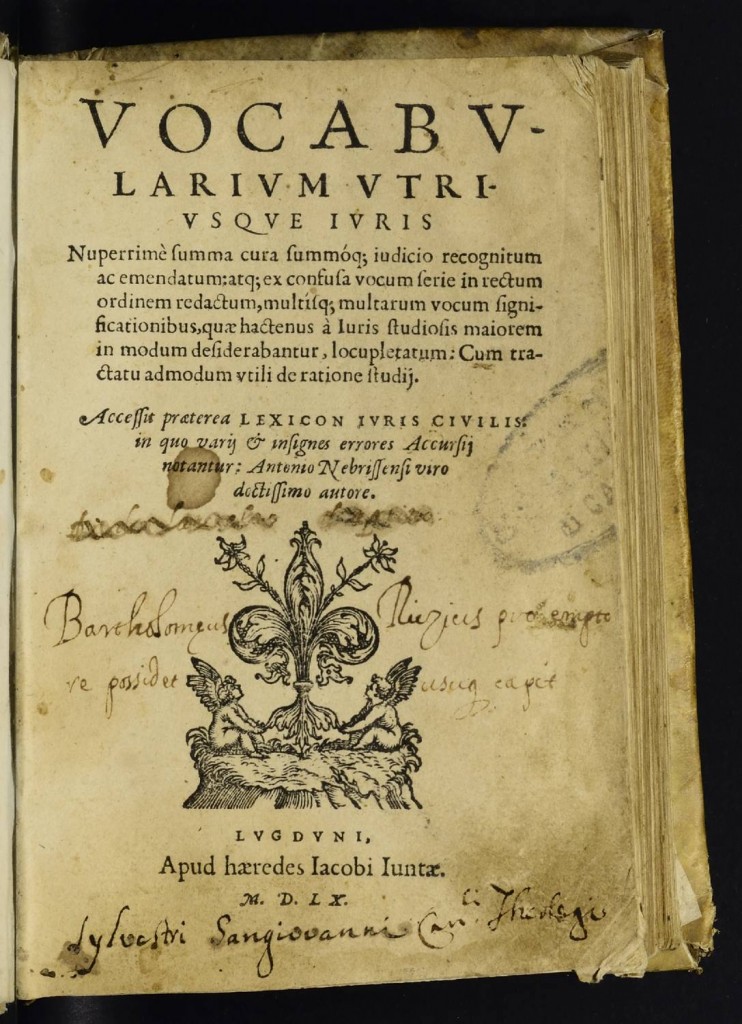 VOCABV-
LARIVM VTRI-
VSQVE IVRIS
Nuperrimè ſumma cura ſummóq; iudicio recognitum
ac emendatum: atq; ex confuſa vocum ſerie in rectum
ordinem redactum, multiſq; multarum vocum ſigni-
ficationibus, quæ hactenus à Iuris ſtudioſis maiorem
in modum deſiderabantur, locupletatum: Cum tra-
ctatu admodum vtili de ratione ſtudij.
Acceſſit præterea LEXICON IVRIS CIVILIS:
in quo varij & inſignes errores Accurſij
notantur: Antonio Nebriſſenſi viro
doctiſſimo autore.
Bartholomeus
re possidet
LVGDVNI,
Apud hæredes Iacobi Iuntæ.
M. D. LX.
Sylvestri Sangiovanni Can.ci Theologi